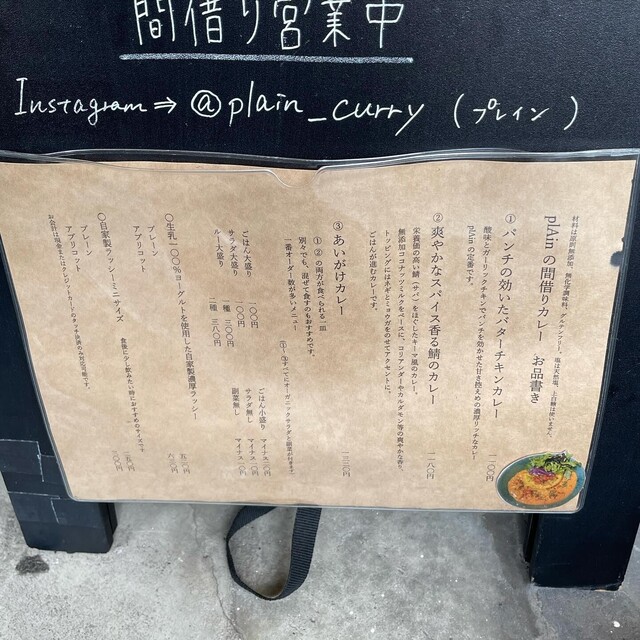 間借り営業中
Instagram⇒ @plain_curry (プレイン)
材料は原則無添加、無化学調味料、グルテンフリー。塩は天然塩、上白糖は使いません。
plAinの間借りカレー お品書き
① パンチの効いたバターチキンカレー 一一〇〇円
酸味とガーリックチキンでパンチを効かせた甘さ控えめの濃厚リッチなカレー。
plAinの定番です。
② 爽やかなスパイス香る鯖のカレー 一一八〇円
栄養価の高い鯖(サバ)をほぐしたキーマ風のカレー。
無添加ココナッツミルクをベースに、コリアンダーやカルダモン等の爽やかな香り。
トッピングにはネギとミョウガをのせてアクセントに。
ごはんが進むカレーです。
③ あいがけカレー
①②の両方が食べられる一皿
別々でも、混ぜて食すのもおすすめです。
一番オーダー数が多いメニュー
①~③すべてにオーガニックサラダと副菜が付きます
ごはん大盛り 一〇〇円
サラダ大盛り 一〇〇円
ルー大盛り 一種 三〇〇円
二種 三八〇円
ごはん小盛り
サラダ無し
副菜無し
〇生乳一〇〇%ヨーグルトを使用した自家製濃厚ラッシー
プレーン
アプリコット
〇自家製ラッシーミニサイズ 食後に少し飲みたい時におすすめのサイズです
プレーン
アプリコット
お会計は現金またはクレジットカードのタッチ決済のみ対応可能です。